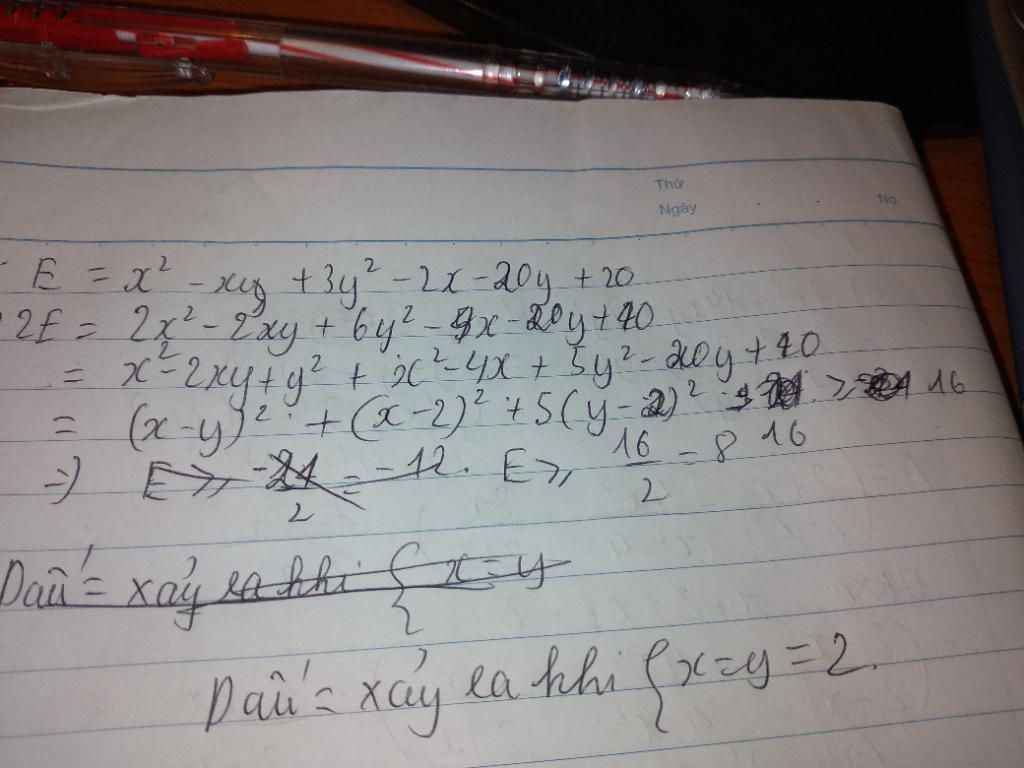 Thứ
Ngày
No.
E = x² - xy + 3y² - 2x - 20y + 20
2E = 2x² - 2xy + 6y² - 4x - 20y + 40
= x² - 2xy + y² + x² - 4x + 5y² - 20y + 40
= (x-y)² + (x-2)² + 5(y-2)² + 16 ≥ 16
=) E ≥ -21/2 = -12. E ≥ 16/2 = 8
Dấu = xảy ra khi { x = y
Dấu = xảy ra khi { x = y = 2.